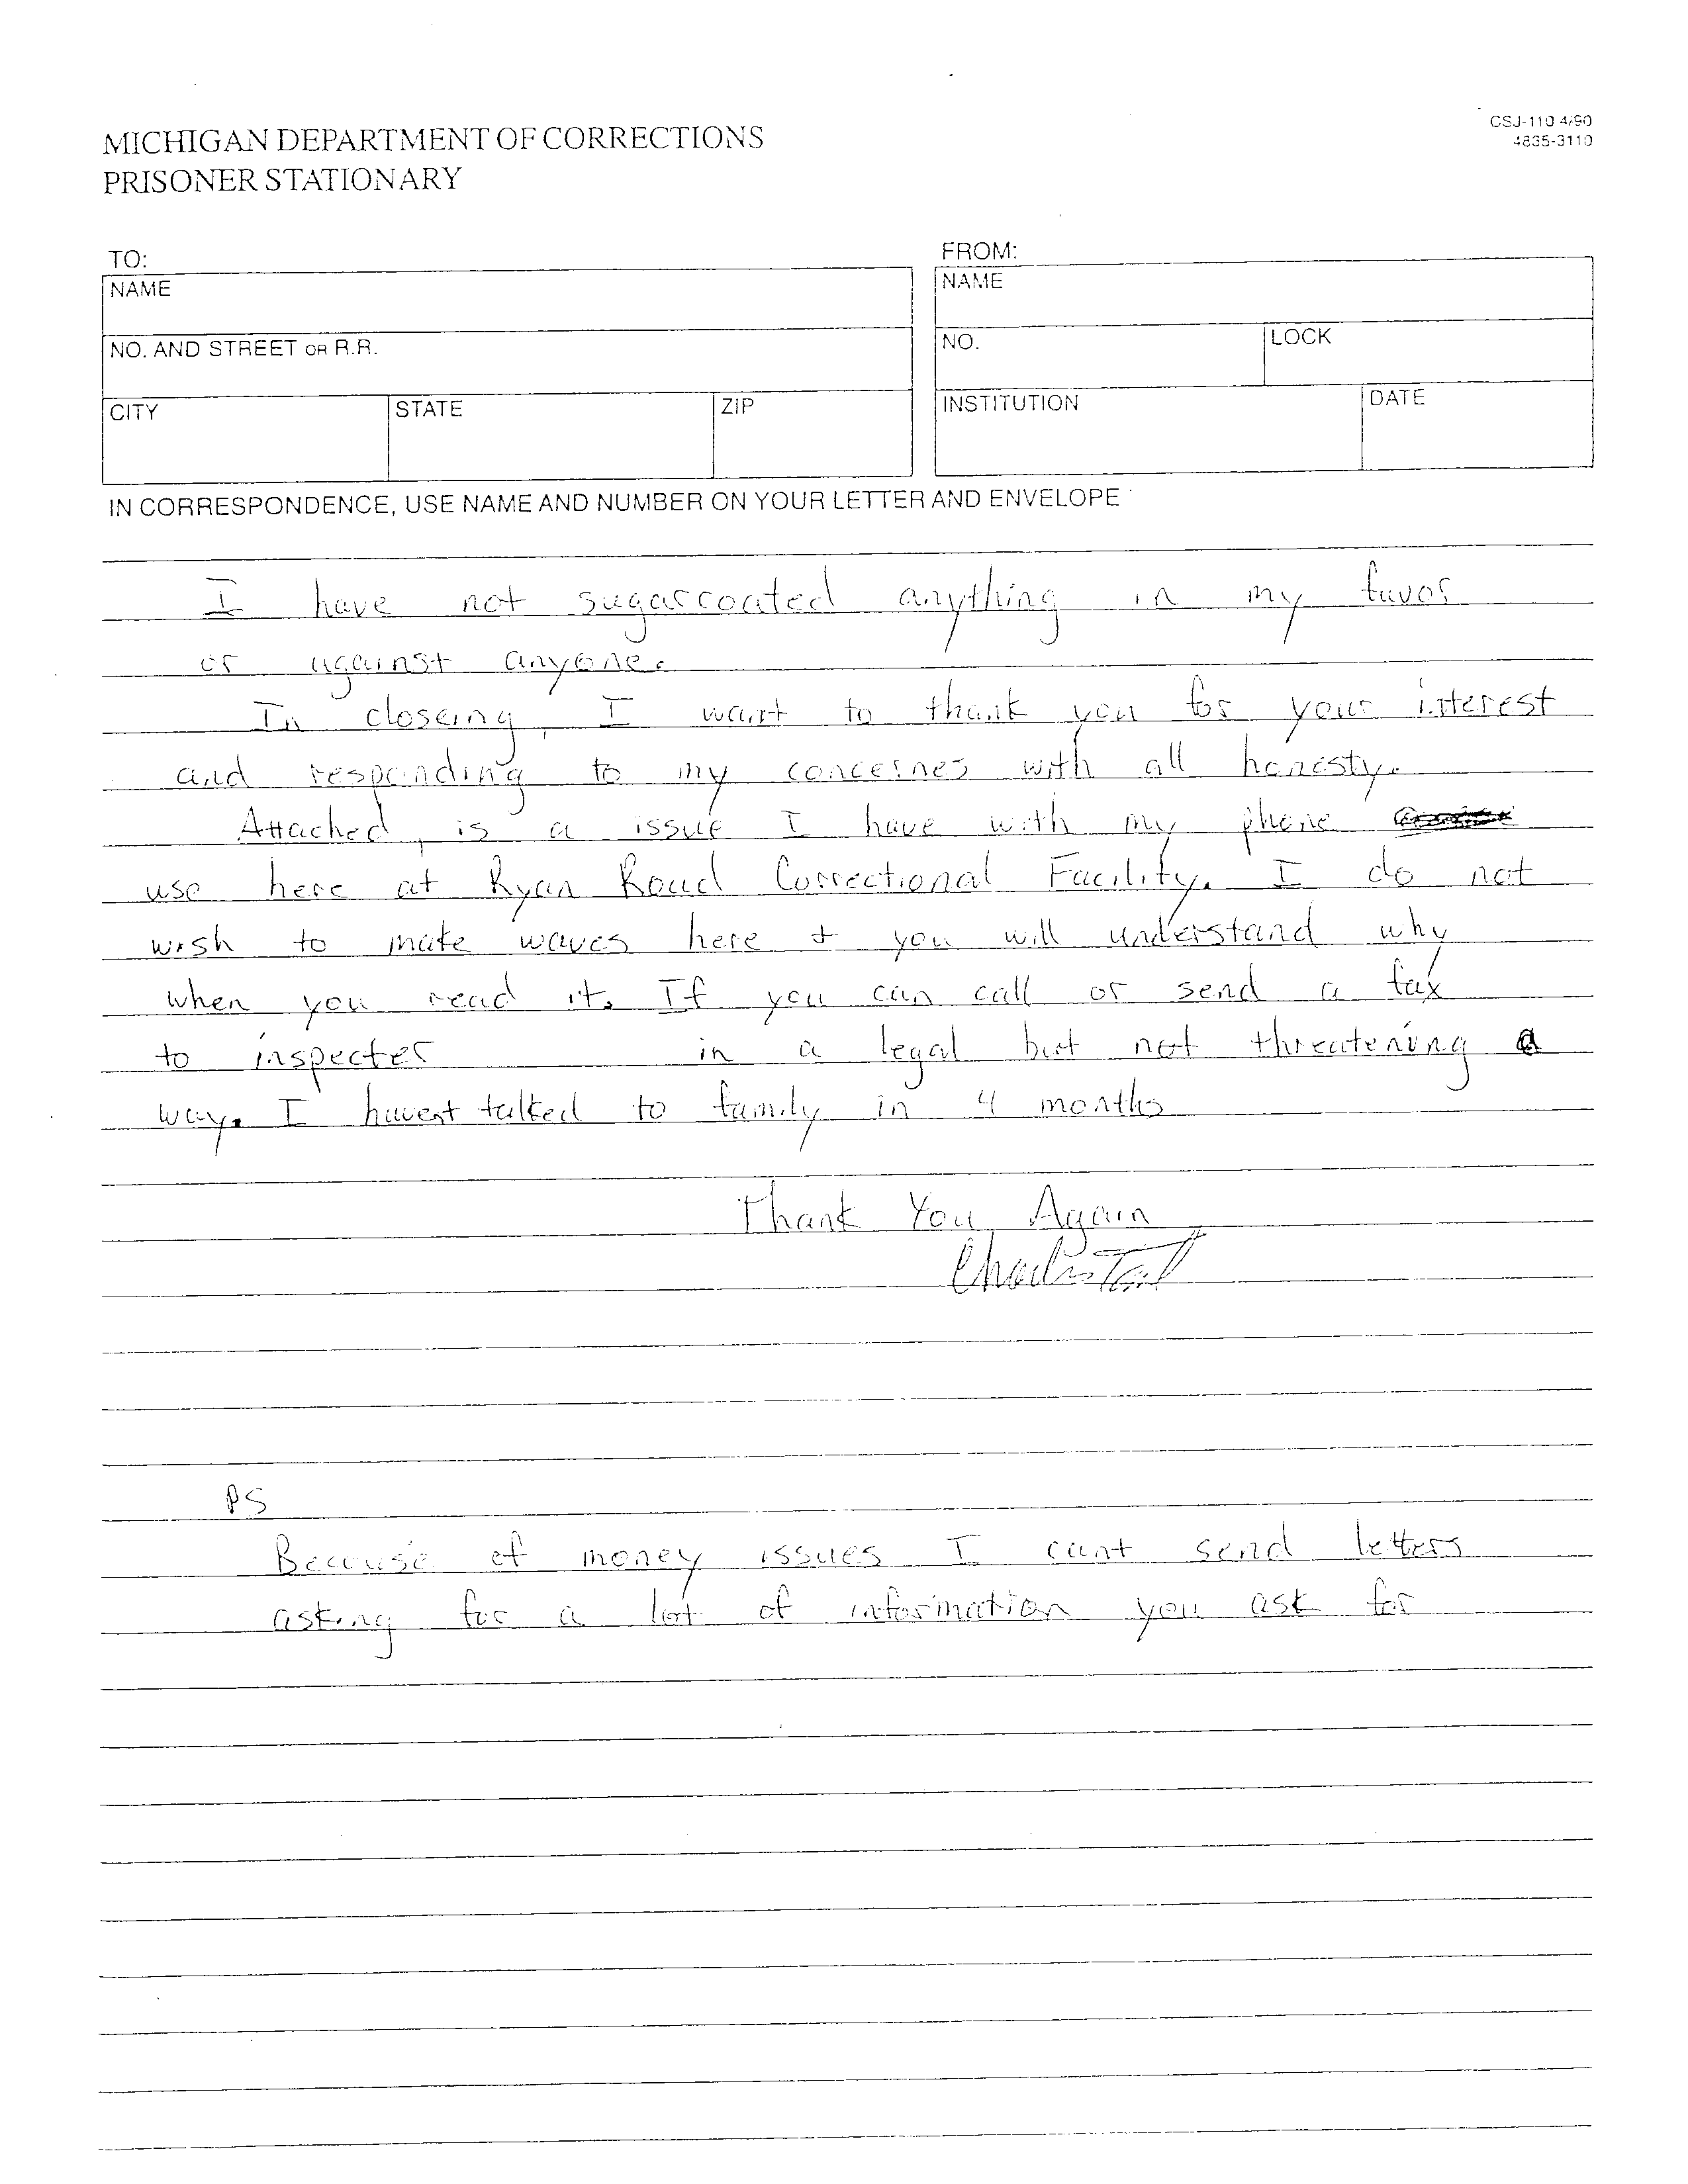 CSJ-110 4/90
4835-3110
MICHIGAN DEPARTMENT OF CORRECTIONS
PRISONER STATIONARY
TO:
NAME
NO. AND STREET OR R.R.
CITY STATE ZIP
FROM:
NAME
NO. LOCK
INSTITUTION DATE
IN CORRESPONDENCE, USE NAME AND NUMBER ON YOUR LETTER AND ENVELOPE
I have not sugarcoated anything in my favor
or against anyone.
In closeing, I want to thank you for your interest
and responding to my concernes with all honesty.
Attached, is a issue I have with my phone
use here at Ryan Road Correctional Facility. I do not
wish to make waves here + you will understand why
when you read it. If you can call or send a fax
to inspecter in a legal but not threatening
way. I havent talked to family in 4 months
Thank You Again
PS
Because of money issues I cant send letters
asking for a lot of information you ask for